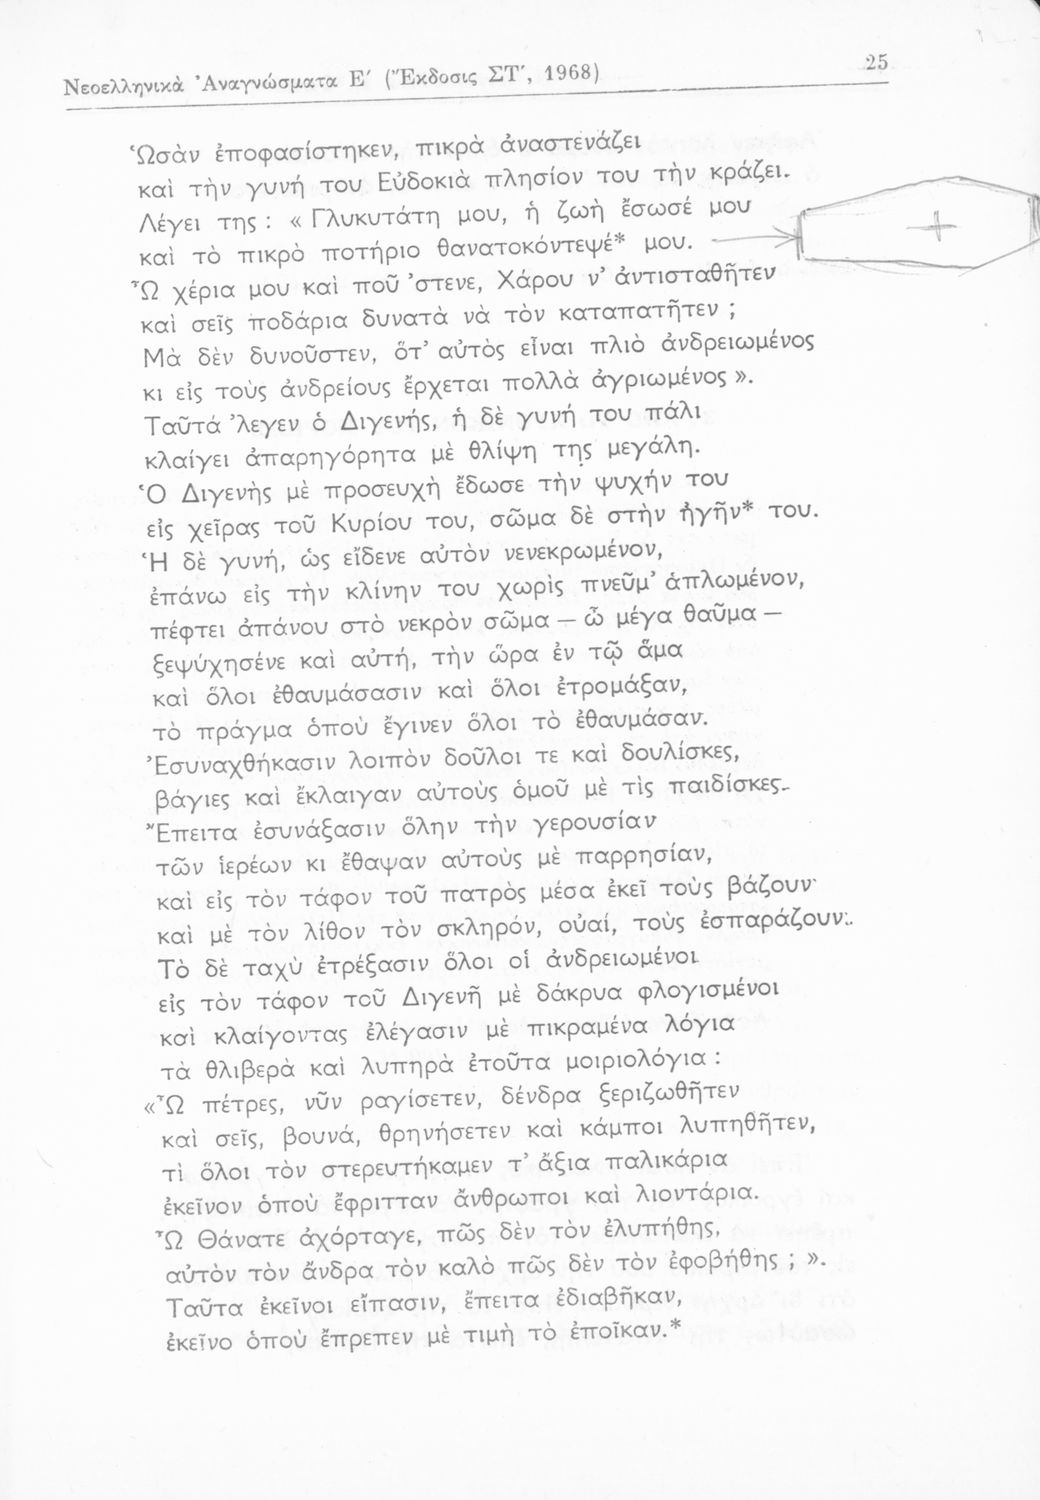 Νεοελληνικὰ Ἀναγνώσματα Ε′ (Ἔκδοσις ΣΤ′, 1968)
25
Ὡσὰν ἐποφασίστηκεν, πικρὰ ἀναστενάζει
καὶ τὴν γυνή του Εὐδοκιὰ πλησίον του τὴν κράζει.
Λέγει της : « Γλυκυτάτη μου, ἡ ζωὴ ἔσωσέ μου
καὶ τὸ πικρὸ ποτήριο θανατοκόντεψέ* μου.
Ὦ χέρια μου καὶ ποῦ 'στενε, Χάρου ν' ἀντισταθῆτεν
καὶ σεῖς ποδάρια δυνατὰ νὰ τὸν καταπατῆτεν ;
Μὰ δὲν δυνοῦστεν, ὅτ' αὐτὸς εἶναι πλιὸ ἀνδρειωμένος
κι εἰς τοὺς ἀνδρείους ἔρχεται πολλὰ ἀγριωμένος ».
Ταῦτά 'λεγεν ὁ Διγενής, ἡ δὲ γυνή του πάλι
κλαίγει ἀπαρηγόρητα μὲ θλίψη της μεγάλη.
Ὁ Διγενὴς μὲ προσευχὴ ἔδωσε τὴν ψυχήν του
εἰς χεῖρας τοῦ Κυρίου του, σῶμα δὲ στὴν ἠγῆν* του.
Ἡ δὲ γυνή, ὡς εἴδενε αὐτὸν νενεκρωμένον,
ἐπάνω εἰς τὴν κλίνην του χωρὶς πνεῦμ' ἁπλωμένον,
πέφτει ἀπάνου στὸ νεκρὸν σῶμα — ὦ μέγα θαῦμα —
ξεψύχησένε καὶ αὐτή, τὴν ὥρα ἐν τῷ ἅμα
καὶ ὅλοι ἐθαυμάσασιν καὶ ὅλοι ἐτρομάξαν,
τὸ πράγμα ὁποὺ ἔγινεν ὅλοι τὸ ἐθαυμάσαν.
Ἐσυναχθήκασιν λοιπὸν δοῦλοι τε καὶ δουλίσκες,
βάγιες καὶ ἔκλαιγαν αὐτοὺς ὁμοῦ μὲ τὶς παιδίσκες.
Ἔπειτα ἐσυνάξασιν ὅλην τὴν γερουσίαν
τῶν ἱερέων κι ἔθαψαν αὐτοὺς μὲ παρρησίαν,
καὶ εἰς τὸν τάφον τοῦ πατρὸς μέσα ἐκεῖ τοὺς βάζουν·
καὶ μὲ τὸν λίθον τὸν σκληρόν, οὐαί, τοὺς ἐσπαράζουν.
Τὸ δὲ ταχὺ ἐτρέξασιν ὅλοι οἱ ἀνδρειωμένοι
εἰς τὸν τάφον τοῦ Διγενῆ μὲ δάκρυα φλογισμένοι
καὶ κλαίγοντας ἐλέγασιν μὲ πικραμένα λόγια
τὰ θλιβερὰ καὶ λυπηρὰ ἐτοῦτα μοιριολόγια :
«Ὦ πέτρες, νῦν ραγίσετεν, δένδρα ξεριζωθῆτεν
καὶ σεῖς, βουνά, θρηνήσετεν καὶ κάμποι λυπηθῆτεν,
τὶ ὅλοι τὸν στερευτήκαμεν τ' ἄξια παλικάρια
ἐκεῖνον ὁποὺ ἔφριτταν ἄνθρωποι καὶ λιοντάρια.
Ὦ Θάνατε ἀχόρταγε, πῶς δὲν τὸν ἐλυπήθης,
αὐτὸν τὸν ἄνδρα τὸν καλὸ πῶς δὲν τὸν ἐφοβήθης ; ».
Ταῦτα ἐκεῖνοι εἴπασιν, ἔπειτα ἐδιαβῆκαν,
ἐκεῖνο ὁποὺ ἔπρεπεν μὲ τιμὴ τὸ ἐποῖκαν.*